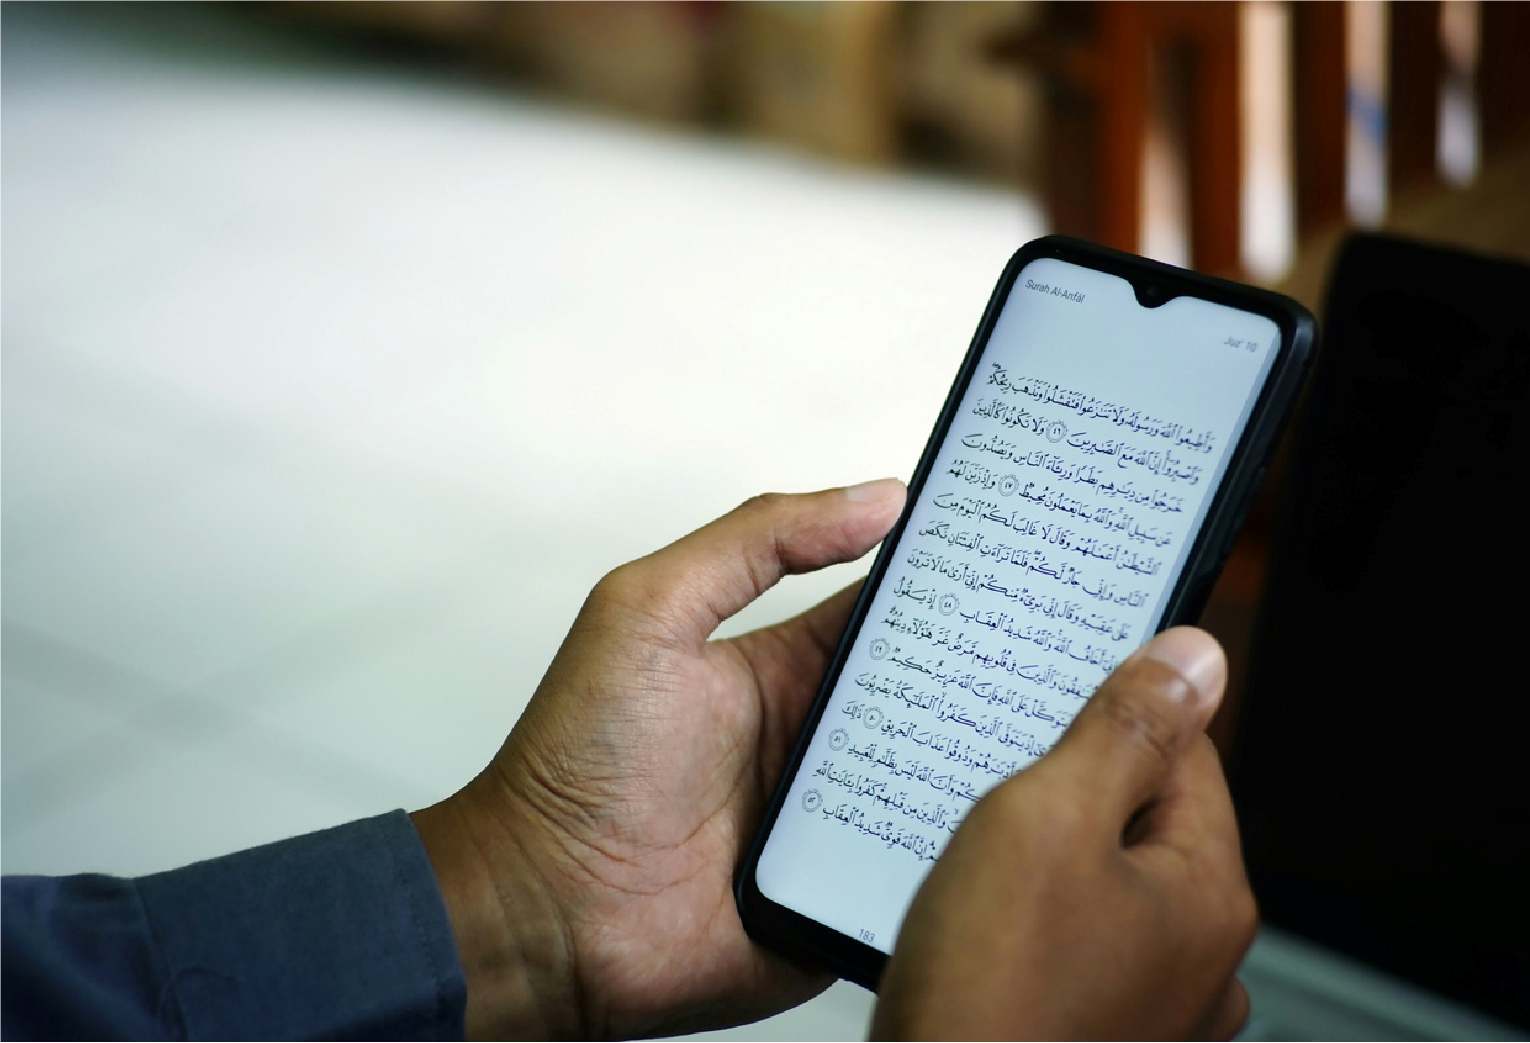 Surah Al-Anfal
Juz' 10
وَأَطِيعُوا۟ ٱللَّهَ وَرَسُولَهُۥ وَلَا تَنَٰزَعُوا۟ فَتَفْشَلُوا۟ وَتَذْهَبَ رِيحُكُمْ ۖ
وَٱصْبِرُوٓا۟ ۚ إِنَّ ٱللَّهَ مَعَ ٱلصَّٰبِرِينَ ٤٦ وَلَا تَكُونُوا۟ كَٱلَّذِينَ
خَرَجُوا۟ مِن دِيَٰرِهِم بَطَرًا وَرِئَآءَ ٱلنَّاسِ وَيَصُدُّونَ
عَن سَبِيلِ ٱللَّهِ ۚ وَٱللَّهُ بِمَا يَعْمَلُونَ مُحِيطٌ ٤٧ وَإِذْ زَيَّنَ لَهُمُ
ٱلشَّيْطَٰنُ أَعْمَٰلَهُمْ وَقَالَ لَا غَالِبَ لَكُمُ ٱلْيَوْمَ مِنَ
ٱلنَّاسِ وَإِنِّى جَارٌ لَّكُمْ ۖ فَلَمَّا تَرَآءَتِ ٱلْفِئَتَانِ نَكَصَ
عَلَىٰ عَقِبَيْهِ وَقَالَ إِنِّى بَرِىٓءٌ مِّنكُمْ إِنِّىٓ أَرَىٰ مَا لَا تَرَوْنَ
إِنِّىٓ أَخَافُ ٱللَّهَ ۚ وَٱللَّهُ شَدِيدُ ٱلْعِقَابِ ٤٨ إِذْ يَقُولُ
ٱلْمُنَٰفِقُونَ وَٱلَّذِينَ فِى قُلُوبِهِم مَّرَضٌ غَرَّ هَٰٓؤُلَآءِ دِينُهُمْ ۗ
يَتَوَكَّلْ عَلَى ٱللَّهِ فَإِنَّ ٱللَّهَ عَزِيزٌ حَكِيمٌ ٤٩
إِذْ يَتَوَفَّى ٱلَّذِينَ كَفَرُوا۟ ۙ ٱلْمَلَٰٓئِكَةُ يَضْرِبُونَ
وَأَدْبَٰرَهُمْ وَذُوقُوا۟ عَذَابَ ٱلْحَرِيقِ ٥٠ ذَٰلِكَ
وَأَنَّ ٱللَّهَ لَيْسَ بِظَلَّٰمٍ لِّلْعَبِيدِ ٥١
وَٱلَّذِينَ مِن قَبْلِهِمْ ۚ كَفَرُوا۟ بِـَٔايَٰتِ ٱللَّهِ
إِنَّ ٱللَّهَ قَوِىٌّ شَدِيدُ ٱلْعِقَابِ ٥٢
183